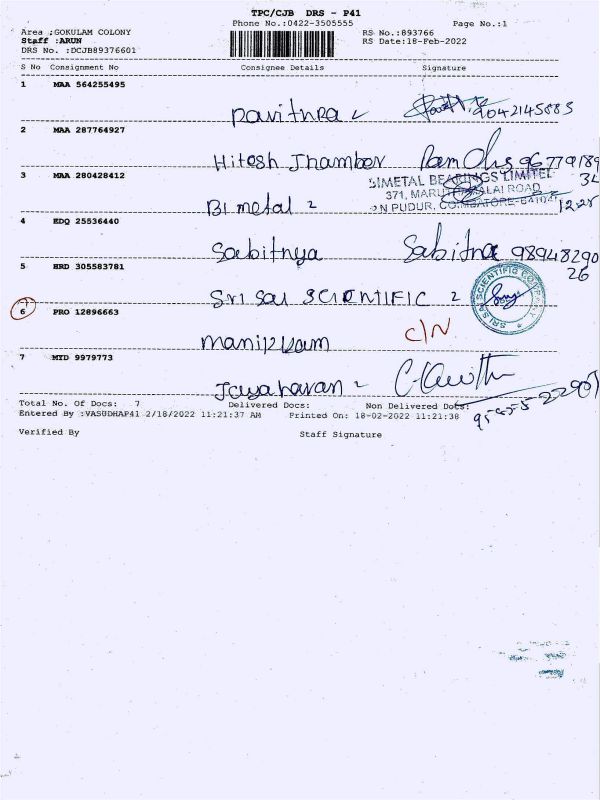 TPC/CJB DRS - P41
Phone No.:0422-3505555 Page No.:1
Area :GOKULAM COLONY RS No.:893766
Staff :ARUN RS Date:18-Feb-2022
DRS No. :DCJB89376601
S No Consignment No Consignee Details Signature
1 MAA 564255495
Pavithra 2
2 MAA 287764927
Hitesh Jhamber
3 MAA 280428412 BIMETAL BEARINGS LIMITED
371, MARUTHAMALAI ROAD
Bimetal 2 P.N PUDUR, COIMBATORE-641041 12.25
4 EDQ 25536440
Sabitnya Sabitha 9894829026
5 HRD 305583781
Sri Sai SCIENTIFIC 2 SRI SAI SCIENTIFIC COMPANY
6 PRO 12896663
C/N
Manikkam
7 MYD 9979773
Jayaharan 2
Total No. Of Docs: 7 Delivered Docs: Non Delivered Docs:
Entered By :VASUDHAP41 2/18/2022 11:21:37 AM Printed On: 18-02-2022 11:21:38
Verified By Staff Signature